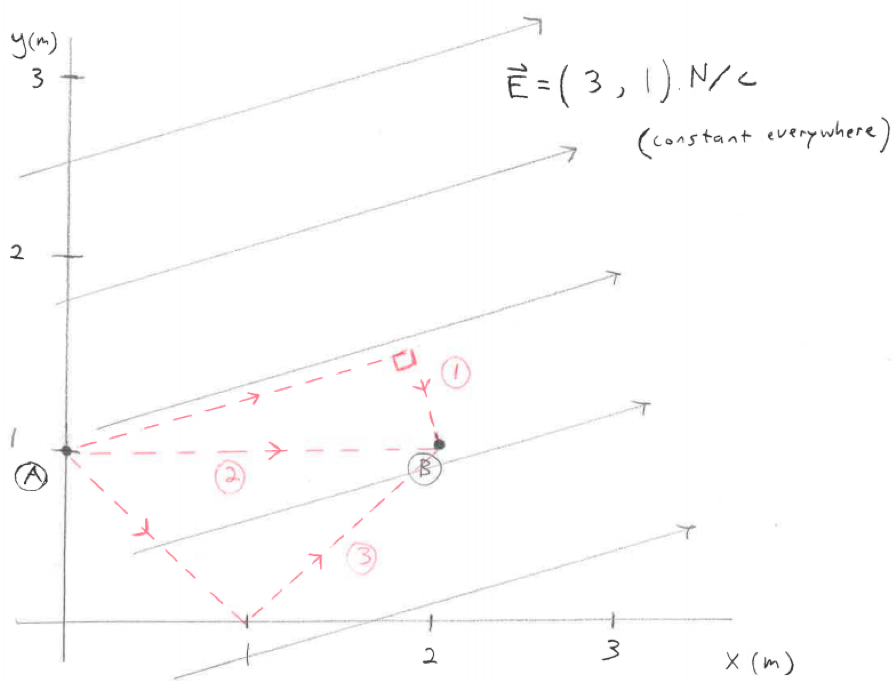 y(m)
3
E⃗ = ( 3 , 1 ) N/c
(constant everywhere)
2
1
①
A
②
B
③
1
2
3
x (m)